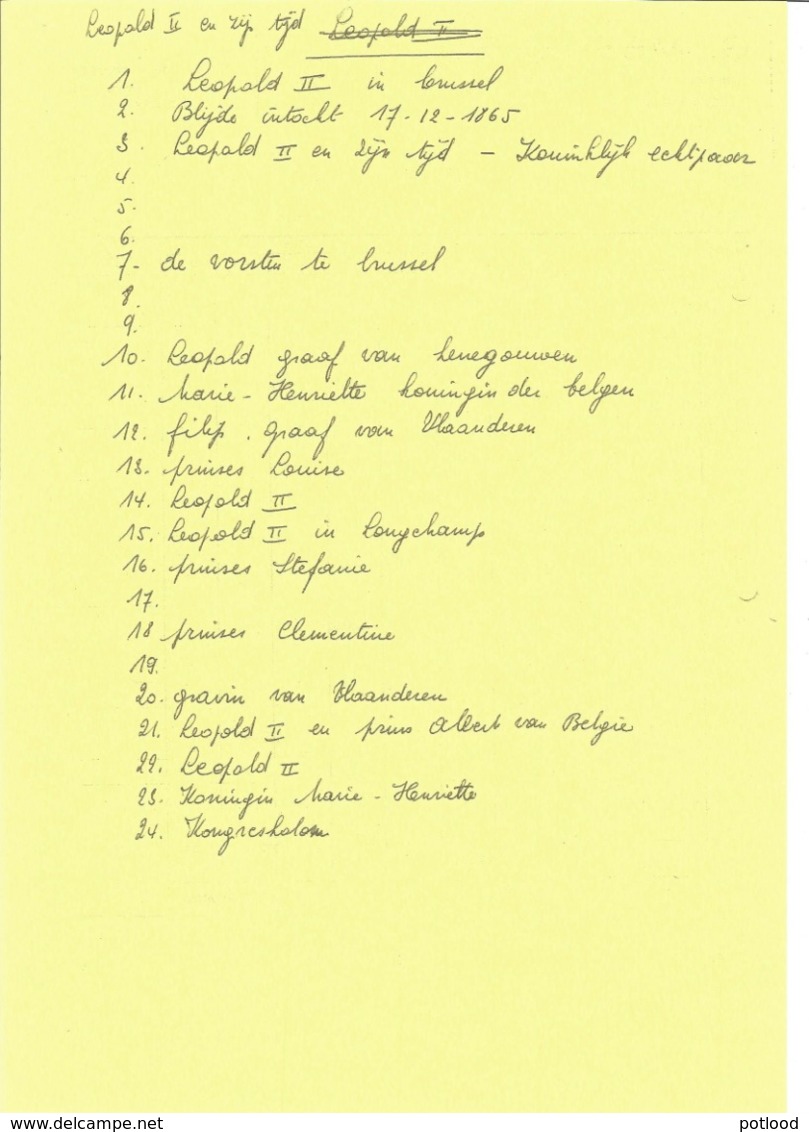 Leopold II en zijn tijd Leopold II
1. Leopold II in brussel
2. Blijde intocht 17-12-1865
3. Leopold II en zijn tijd - Koninklijk echtpaar
4.
5.
6.
7- de vorsten te brussel
8.
9.
10. Leopold graaf van henegouwen
11. Marie-Henriette koningin der belgen
12. filip. graaf van Vlaanderen
13. prinses Louise
14. Leopold II
15. Leopold II in Longchamp
16. prinses Stefanie
17.
18 prinses Clementine
19.
20. gravin van Vlaanderen
21. Leopold II en prins Albert van Belgie
22. Leopold II
23. Koningin Marie-Henriette
24. Kongreskolom
www.delcampe.net
potlood